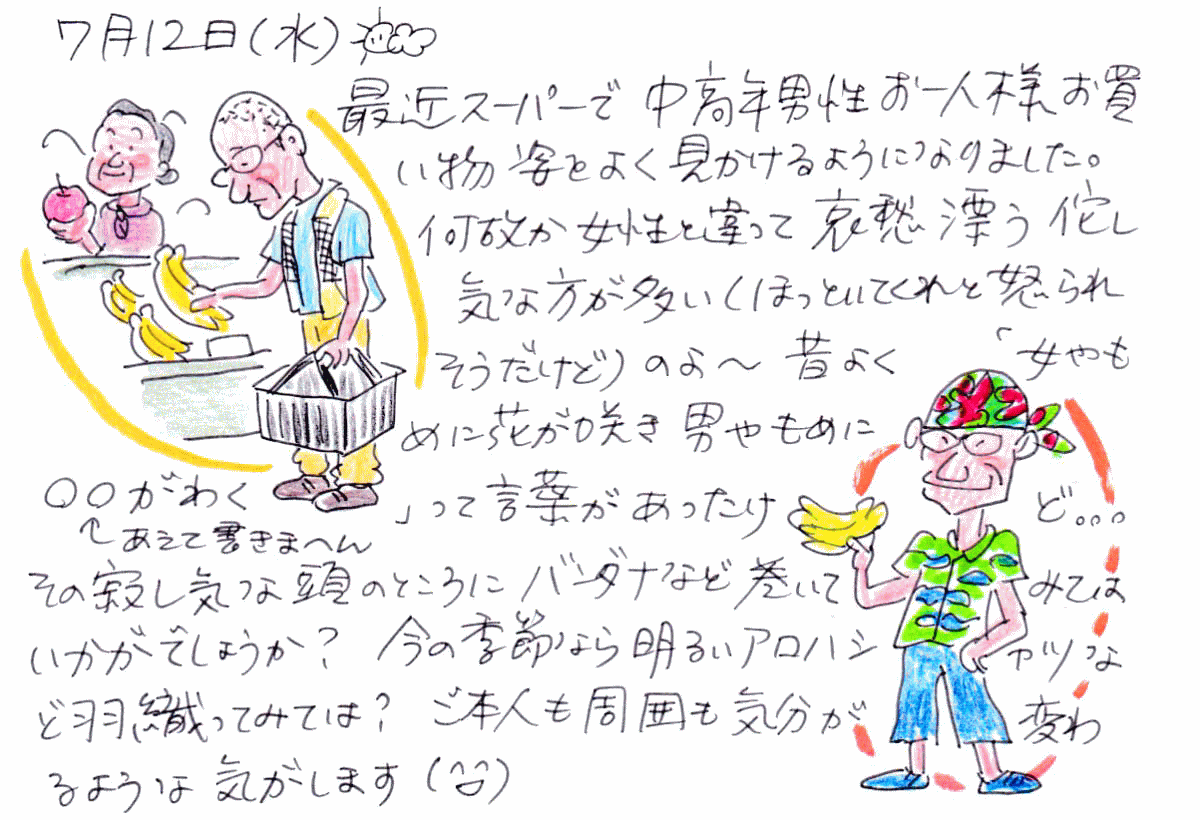 7月12日(水)
最近スーパーで中高年男性お一人様お買
い物姿をよく見かけるようになりました。
何故か女性と違って哀愁漂う侘し
気な方が多い(ほっといてくれと怒られ
そうだけど)のよ〜 昔よく「女やも
めに花が咲き男やもめに
○○がわく」って言葉があったけど...
↑あえて書きまへん
その寂し気な頭のところにバンダナなど巻いてみては
いかがでしょうか? 今の季節なら明るいアロハシャツな
ど羽織ってみては? ご本人も周囲も気分が変わ
るような気がします(^^)